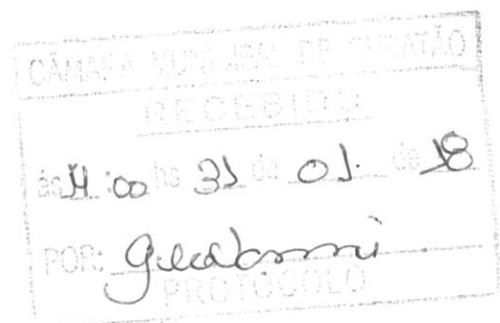 CÂMARA MUNICIPAL DE CUBATÃO
RECEBIDO
às :00 hs 31 de 01. de 18
POR: Giovanni
PROTOCOLO